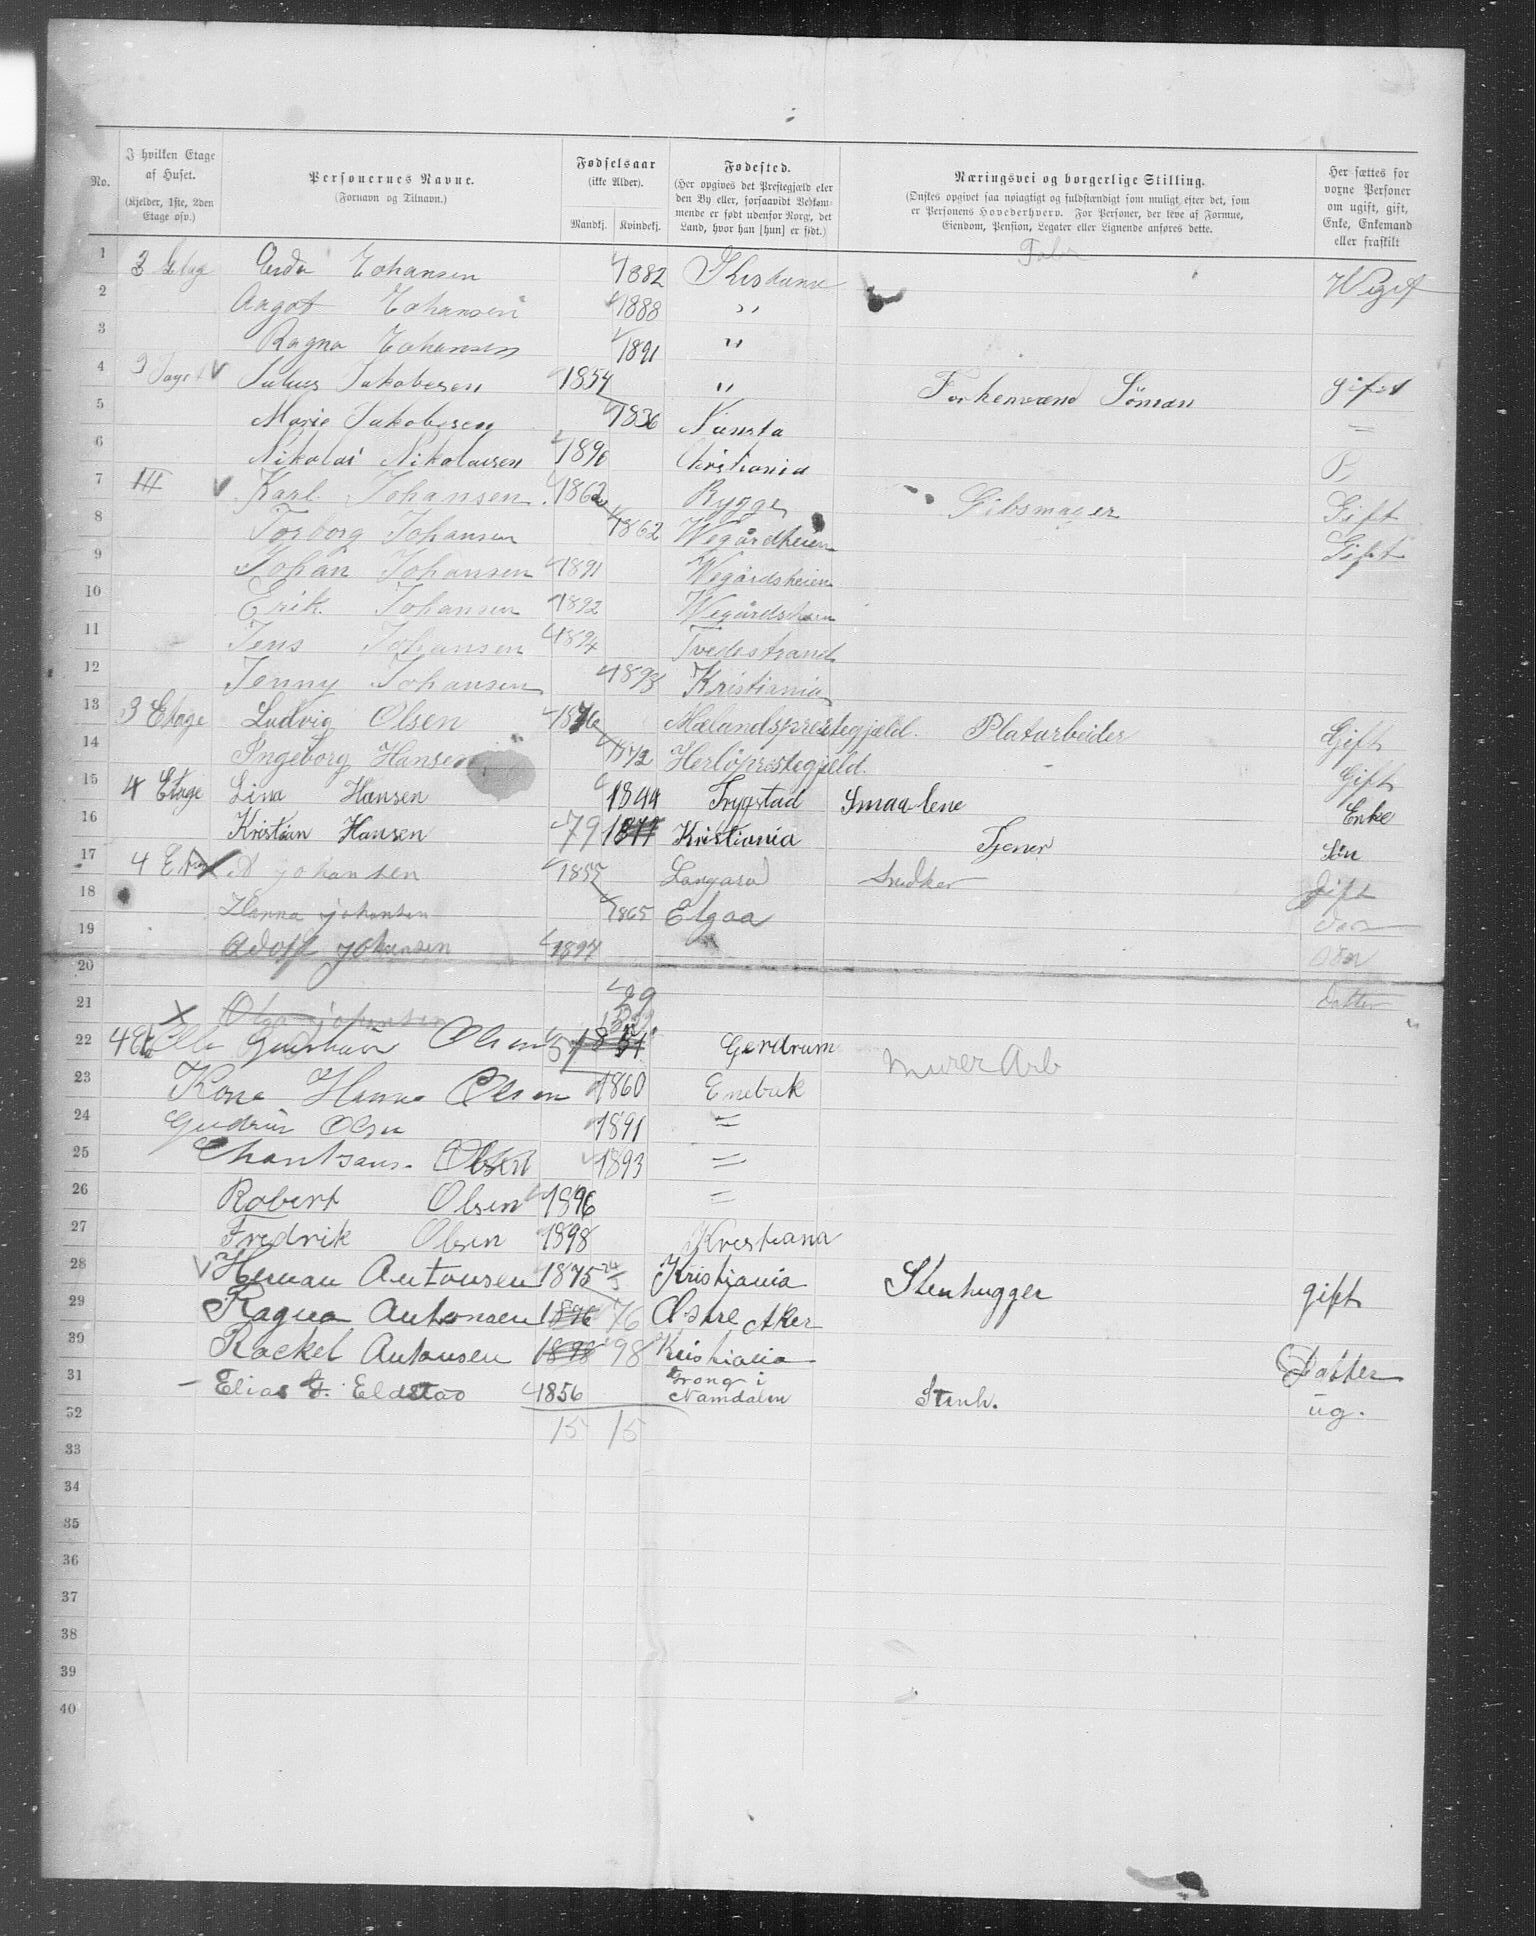 No.
I hvilken Etage af Huset. (Kjelder, 1ste, 2den Etage osv.)
Personernes Navne. (Fornavn og Tilnavn.)
Fødselsaar (ikke Alder). Mandkj. Kvindekj.
Fødested. (Her opgives det Prestegjæld eller den By eller, forsaavidt Vedkommende er født udenfor Norge, det Land, hvor han [hun] er født.)
Næringsvei og borgerlige Stilling. (Ønskes opgivet saa nøiagtigt og fuldstændigt som muligt efter det, som er Personens Hovederhverv. For Personer, der leve af Formue, Eiendom, Pension, Legater eller Lignende anføres dette.
Her sættes for voxne Personer om ugift, gift, Enke, Enkemand eller fraskilt
1 3 Etag Johansen 1882
2 Aagot Johansen 1888 "
3 Ragna Johansen 1891 "
4 3 Julius Jakobsen 1854 " Søman gift
5 Marie Jakobsen 1836 =
6 Nikolai Nikolaisen 1890 Christiania
7 III Karl Johansen 1862 Rygge Gibsmager Gift
8 Torborg Johansen 1862 Wegårdheien Gift
9 Johan Johansen 1891 Wegårdsheien
10 Erik Johansen 1892 Wegårdsheien
11 Jens Johansen 1894 Tvedestrand
12 Jenny Johansen 1898 Kristiania
13 3 Etage Ludvig Olsen 1876 Mælandsprestegjæld. Platarbeider Gift
14 Ingeborg Hansen 1872 Herløprestegjeld. Gift
15 4 Etage Lina Hansen 1844 Trygstad Smaalene Enke
16 Kristian Hansen 79 1877 Kristiania Tjener Søn
17 4 Johansen 1855 Snedker Gift
18 Hanna Johansen 1865 Elgaa
19 Adolf Johansen 1897 Søn
20
21 Olga Johansen 99 Datter
22 4 Et Olsen 51 Gerdrum Murer Arb
23 Hanna Olsen 1860 Enebak
24 Gudrun Olsen 1891 =
25 Olsen 1893 =
26 Robert Olsen 1896 =
27 Fredrik Olsen 1898 Kristiana
28 Herman Antonsen 1875 24/5 Kristiania Stenhugger gift
29 Ragna Antonsen 1876 76 Østre Aker
30 Rackel Antonsen 1898 98 Kristiania Datter
31 Elias G. Eldstao 1856 Grong i Namdalen Stenh. ug.
32 15 15
33
34
35
36
37
38
39
40